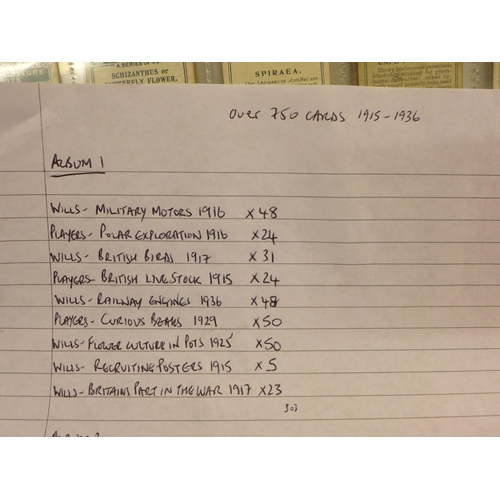 A SERIES OF
SCHIZANTHUS or
BUTTERFLY FLOWER.
SPIRAEA.
Over 750 CARDS 1915-1936
ALBUM 1
WILLS- MILITARY MOTORS 1916 X 48
PLAYERS- POLAR EXPLORATION 1916 X 24
WILLS- BRITISH BIRDS 1917 X 31
PLAYERS- BRITISH LIVE STOCK 1915 X 24
WILLS- RAILWAY ENGINES 1936 X 48
PLAYERS- CURIOUS BEAKS 1929 X 50
WILLS- FLOWER CULTURE IN POTS 1925 X 50
WILLS- RECRUITING POSTERS 1915 X 5
WILLS- BRITAINS PART IN THE WAR 1917 X 23
303